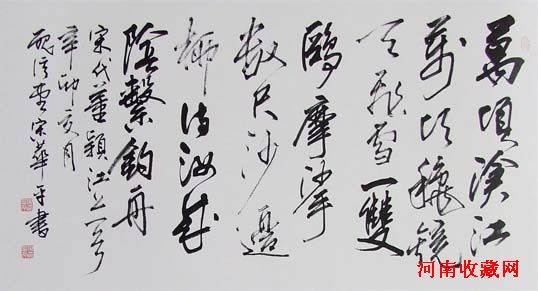 萬頃滄江
萬頃穐鏡
天飛雪一雙
鷗摩挲
数尺沙邊
柳待汝成
陰繫釣舟
宋代董穎江上一首
辛卯夏月
宋華平書
河南收藏网